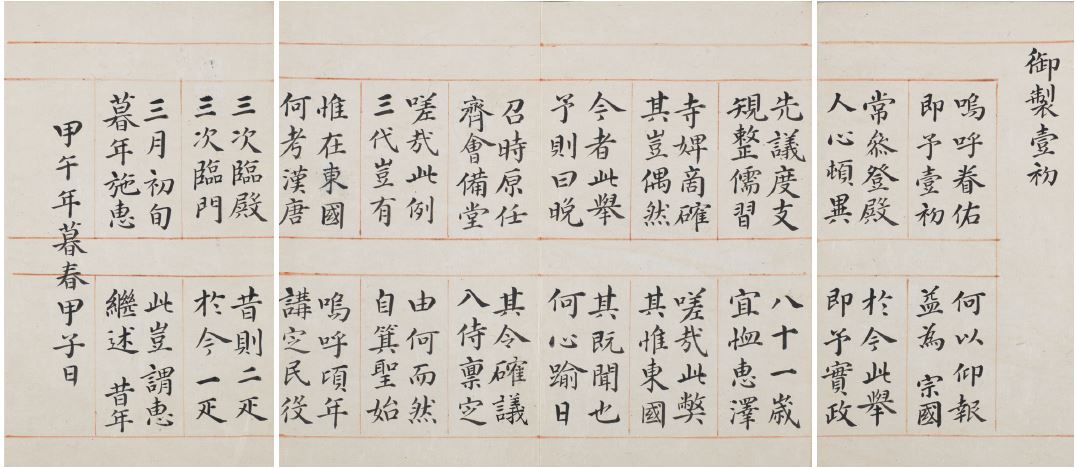 御製壹初
嗚呼眷佑
即予壹初
何以仰報
益為 宗國
常叅登殿
人心頓異
於今此舉
即予實政
先議度支
規整儒習
八十一歲
宜恤惠澤
寺婢啇確
其豈偶然
嗟哉此弊
其惟東國
今者此舉
予則曰晚
其既聞也
何心踰日
召時原任
齊會備堂
其令確議
入侍稟㝎
嗟哉此例
三代豈有
由何而然
自箕聖始
惟在東國
何考漢唐
嗚呼頃年
講㝎民役
三次臨殿
三次臨門
昔則二疋
於今一疋
三月初旬
暮年施惠
此豈謂惠
繼述 昔年
甲午年暮春甲子日